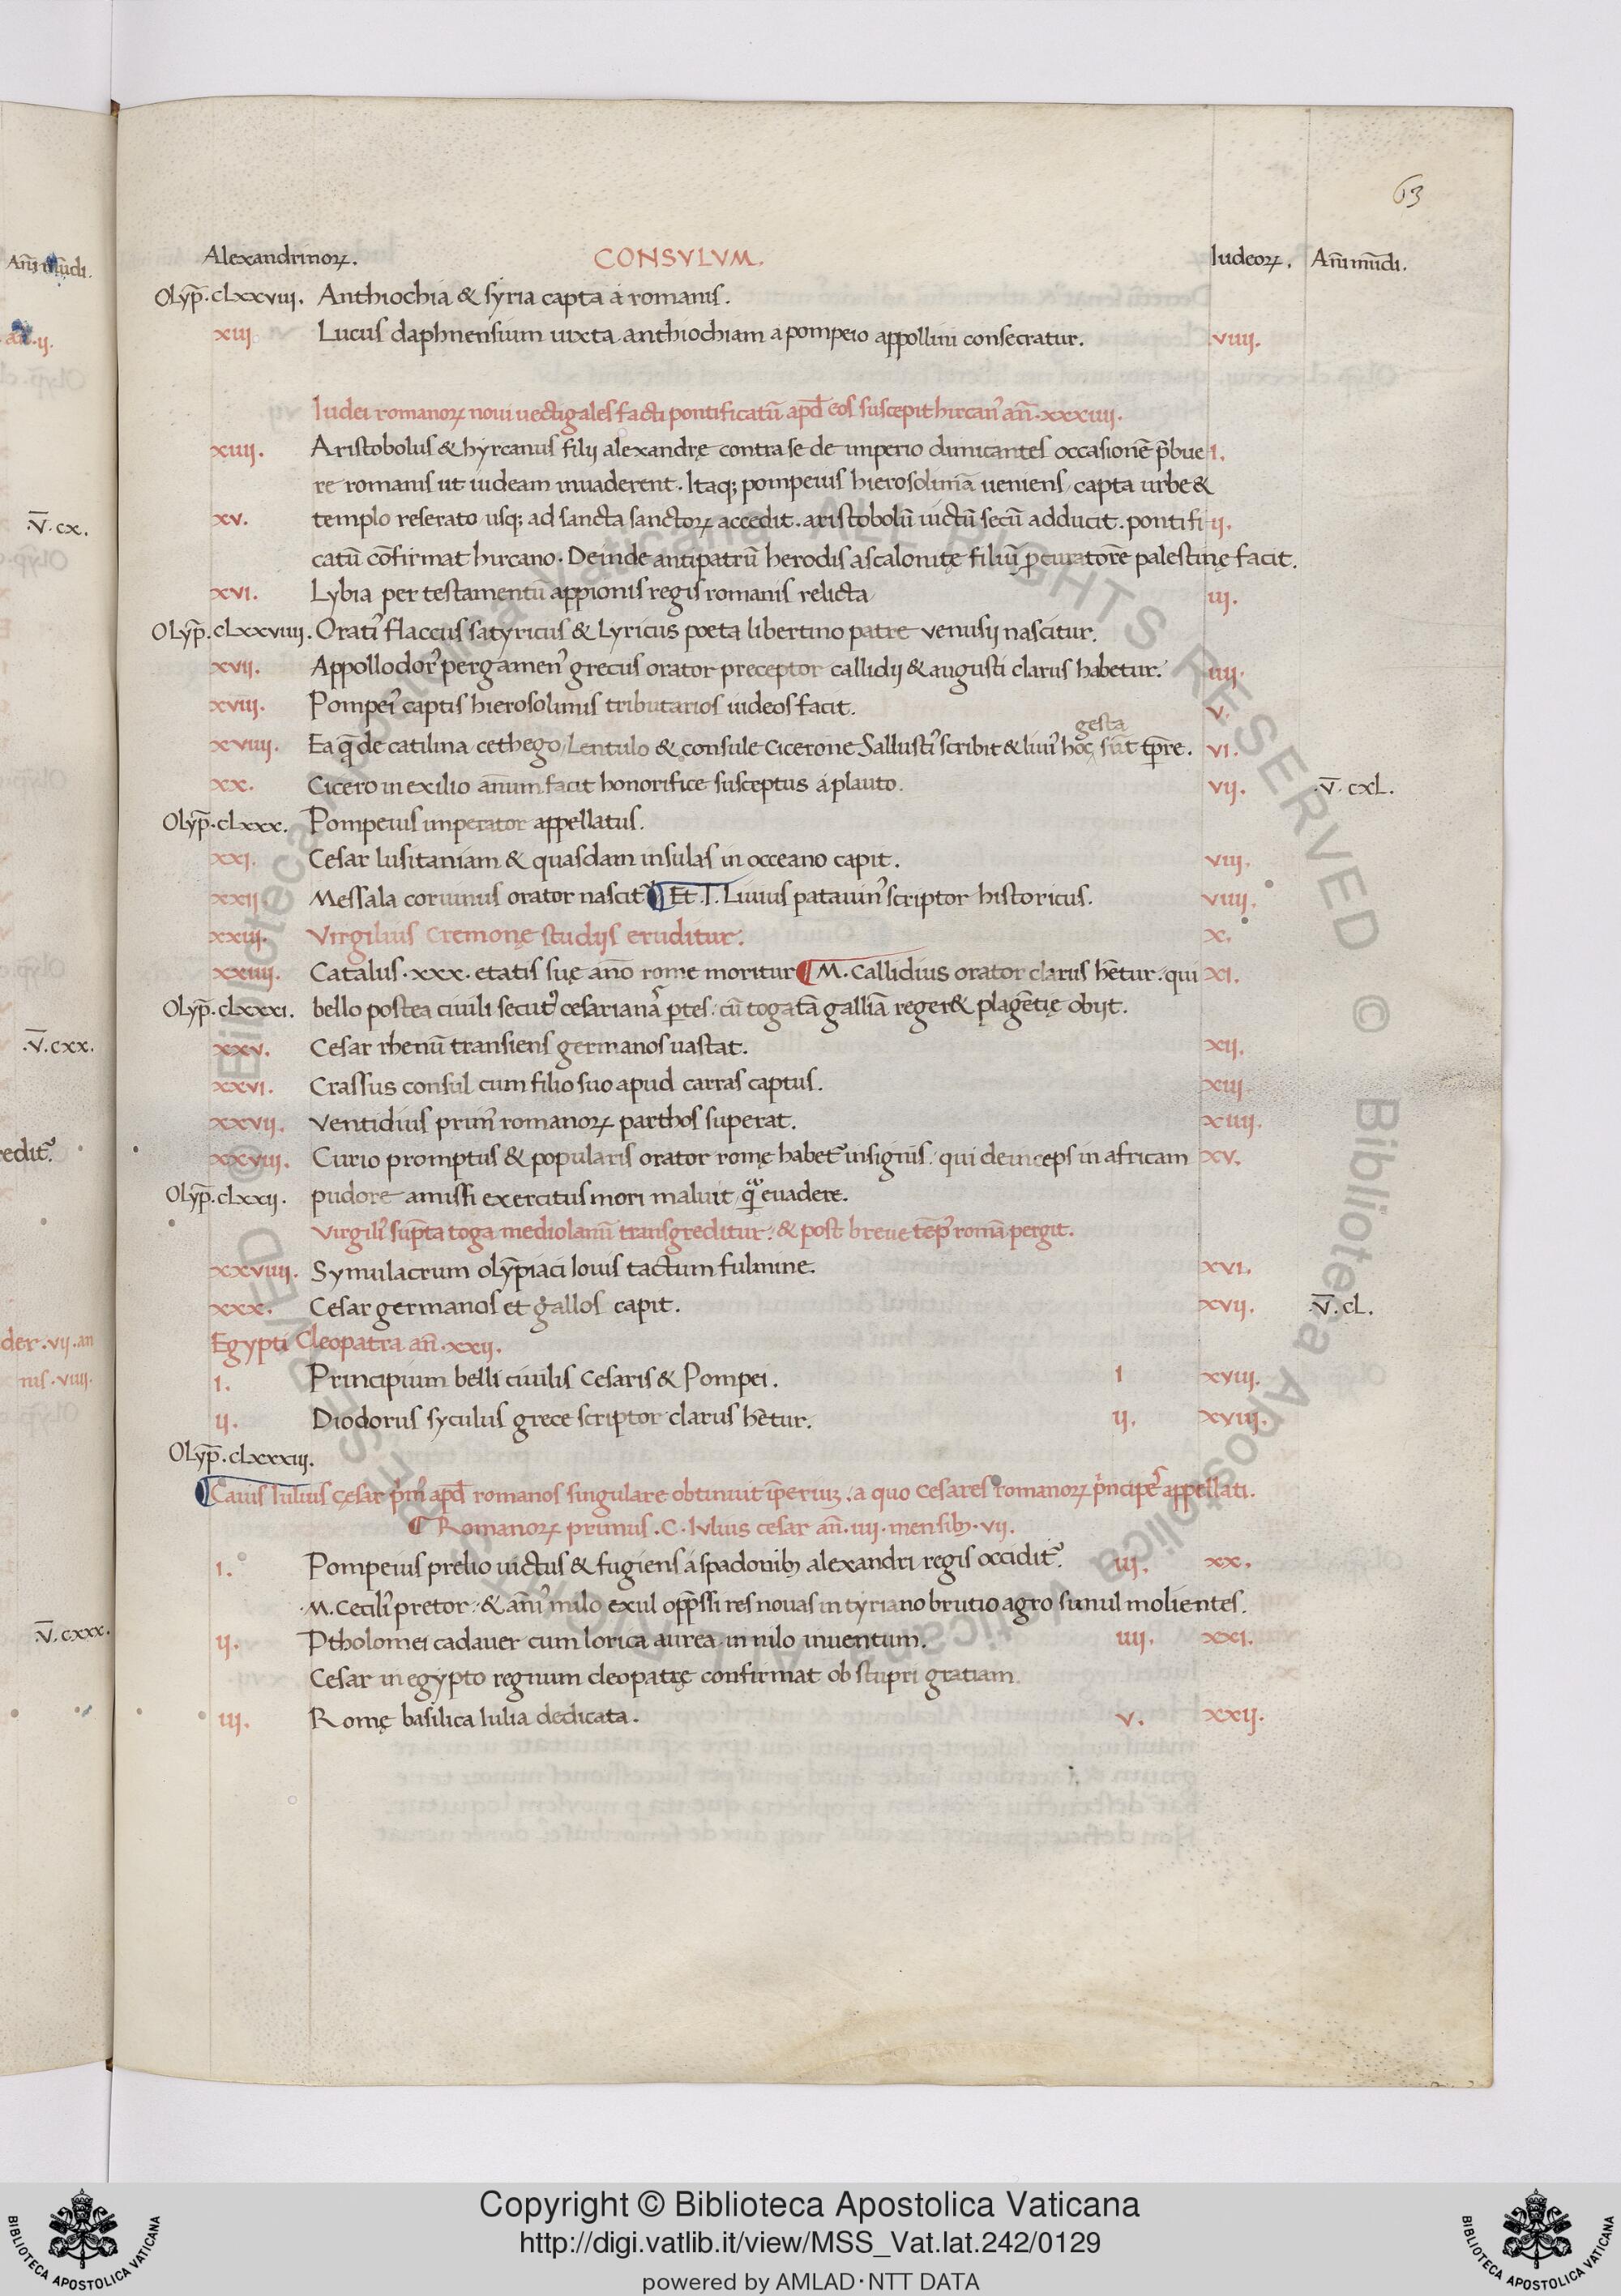 63
Alexandrinoꝝ. CONSVLVM. Iudeoꝝ. An̄i mūdi.
Olyp̄. clxxviii. Anthiochia & syria capta a romanis.
xiii Lucus daphnensium iuxta anthiochiam a pompeio appollini consecratur. viiii.
Iudei romanoꝝ noui uectigales facti pontificatū apđ eos suscepit hircan᾽ an̄. xxxiiii.
xiiii. Aristobolus & hyrcanus filij alexandrę contra se de imperio dimicantes occasionē p̄bue i.
re romanis ut iudeam inuaderent. Itaq; pompeius hierosolimā ueniens capta urbe &
xv. templo reserato usq; ad sancta sanctoꝝ accedit. aristobolū uictū secū adducit. pontifi ii.
catū cōfirmat hircano. Deinde antipatrū herodis ascalonitę filiū ꝓcuratorē palestinę facit.
xvi. Lybia per testamentū appionis regis romanis relicta iii.
Olyp̄. clxxviiii. Orati᾽ flaccus satyricus & lyricus poeta libertino patre venusij nascitur.
xvii. Appollodor᾽ pergamen᾽ grecus orator preceptor callidij & augusti clarus habetur. iiii.
xviii. Pompei᾽ captis hierosolimis tributarios iudeos facit. v.
gesta
xviiii. Ea q̄ de catilina cethego lentulo & consule cicerone Sallusti᾽ scribit & liui᾽ hoc sūt tp̄re. vi.
xx. Cicero in exilio an̄um facit honorifice susceptus a plauto. vii. .v̄. cxl.
Olyp̄. clxxx. Pompeius imperator appellatus.
xxi. Cesar lusitaniam & quasdam insulas in occeano capit. viii.
xxii. Messala coruinus orator nascit᾽ ¶ Et .T. Liuius patauin᾽ scriptor historicus. viiii.
xxiii. Virgilius Cremonę studijs eruditur. x.
xxiiii. Catalus .xxx. etatis suę an̄o rome moritur ¶ M. Callidius orator clarus hētur. qui xi.
Olyp̄. clxxxi. bello postea ciuili secut᾽ cesarianas ꝑtes. cū togatā galliā reger& plagētię obijt.
xxv. Cesar rhenū transiens germanos uastat. xii.
xxvi. Crassus consul cum filio suo apud carras captus. xiii.
xxvii. Ventidius prim᾽ romanoꝝ parthos superat. xiiii.
xxviii. Curio promptus & popularis orator romę habet᾽ insignis. qui deinceps in africam xv.
Olyp̄. clxxii. pudore amissi exercitus mori maluit q̄ᵃ euadere.
Virgili᾽ sūpta toga mediolanū transgreditur. & post breue tēp᾽ romā pergit.
xxviiii. Symulacrum olympiaci Iouis tactum fulmine. xvi.
xxx. Cesar germanos et gallos capit. xvii. .v̄. cl.
Egypti Cleopatra an̄. xxii.
i. Principium belli ciuilis Cesaris & Pompei. i xviii.
ii. Diodorus syculus grece scriptor clarus hētur. ii. xviiii.
Olyp̄. clxxxiii.
¶ Caius Iulius cęsar p̄m᾽ apđ romanos singulare obtinuit īperiuꝫ. a quo cesares romanoꝝ pͥncipes appellati.
¶ Romanoꝝ primus .C. Iulius cesar an̄. iiii. mensibꝫ. vii.
i. Pompeius prelio uictus & fugiens a spadonibꝫ alexandri regis occidit᾽. iii. xx.
.M. Cecili᾽ pretor. & an̄i᾽ milo exul opp̄ssi res nouas in tyriano brutio agro simul molientes.
ii. Ptholomei cadauer cum lorica aurea in nilo inuentum. iiii. xxi.
Cesar in egypto regnum cleopatrę confirmat ob stupri gratiam.
iii. Romę basilica Iulia dedicata. v. xxii.
An̄i mūdi.
an̄. ii.
.v̄. cx.
.v̄. cxx.
redit᾽.
der. vii. an
nis. viiii.
.v̄. cxxx.
© Biblioteca Apostolica Vaticana ALL RIGHTS RESERVED
Copyright © Biblioteca Apostolica Vaticana
http://digi.vatlib.it/view/MSS_Vat.lat.242/0129
powered by AMLAD·NTT DATA
BIBLIOTECA APOSTOLICA VATICANA
BIBLIOTECA APOSTOLICA VATICANA